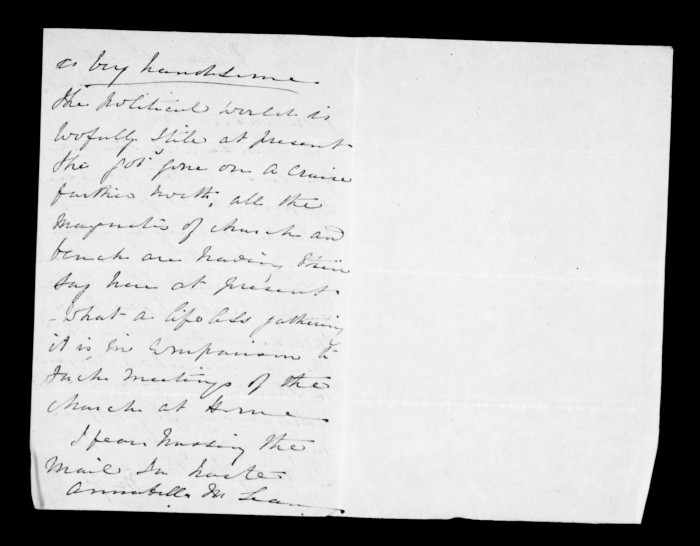 a very handsome.
The political world is
wofully still at present.
The Govr gone on a cruise
further north, all the
magnets of church and
bench are having their
say here at present.
- What a lifeless gathering
it is, in comparison to
such meetings of the
church at Home.
I fear missing the
mail In haste
Annabella McLean